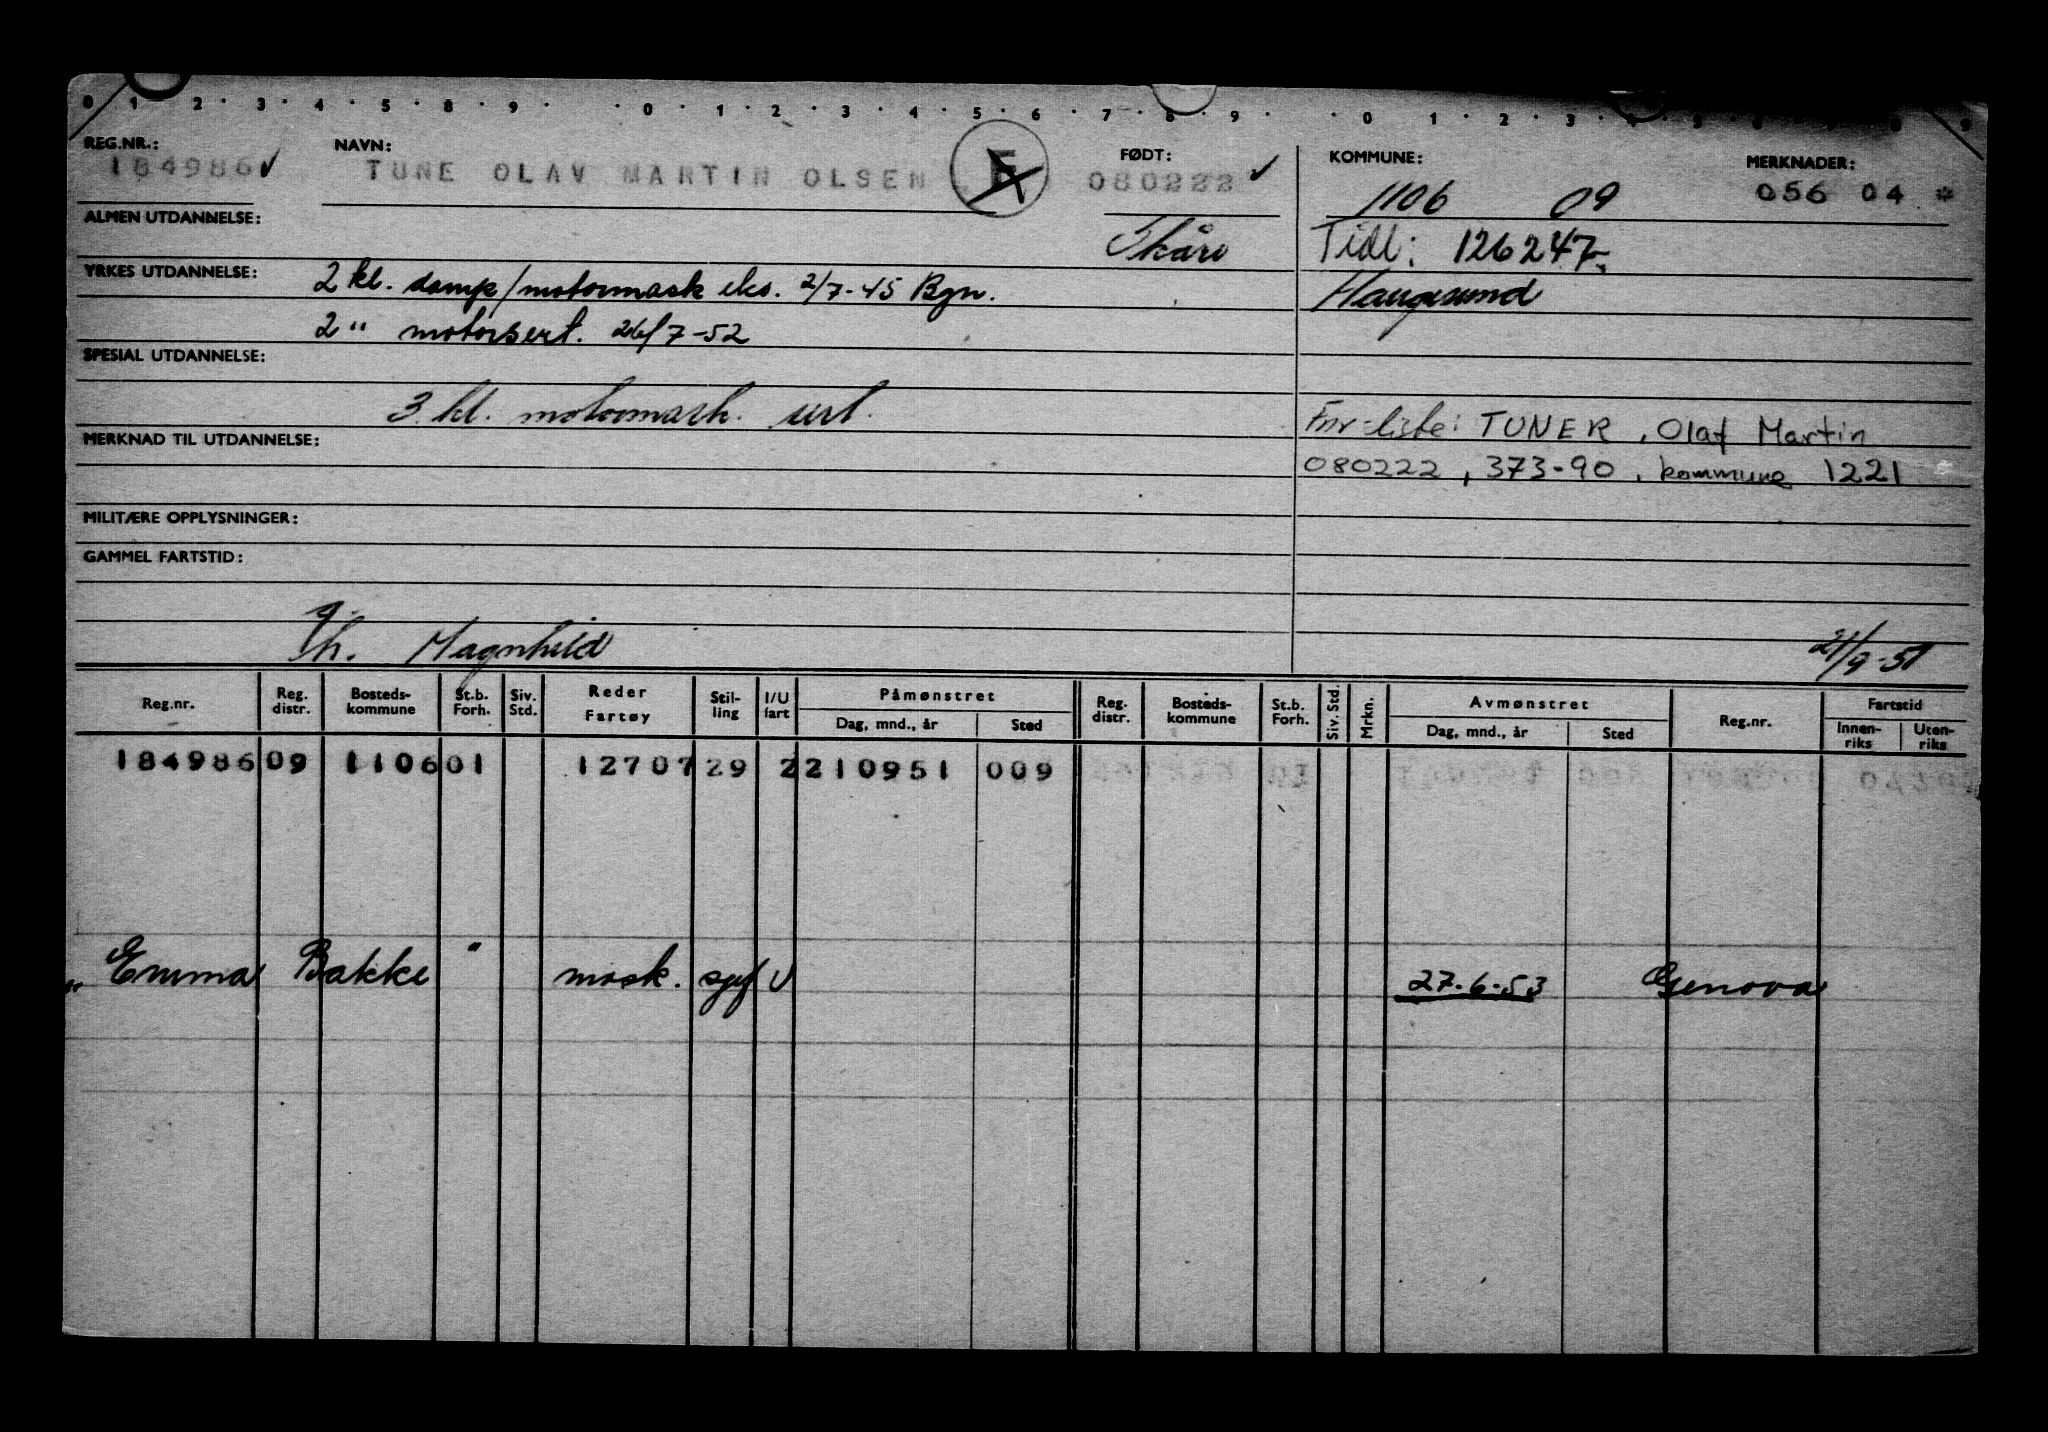 0 1 · 2 · 3 · 4 · 5 · 8 · 9 · · 0 · 1 · 2 · 3 · 4 · 5 · 6 · 7 · 8 · 9 · · 0 · 1 · 2 · 3 · 4 · 5 · 6 · 7 · 8 9
REG.NR.: NAVN: FØDT: KOMMUNE: MERKNADER:
184986 ✓ TUNE OLAV MARTIN OLSEN 080222 ✓ 1106 09 056 04 *
ALMEN UTDANNELSE: Skåre Tidl: 126247
YRKES UTDANNELSE: 2 kl. damp/motormask eks. 2/7-45 Bgn. Haugesund
2 " motorsert. 26/7-52
SPESIAL UTDANNELSE:
3 kl. motormask.
MERKNAD TIL UTDANNELSE: Fnr-liste: TUNER, Olaf Martin
080222, 373-90, kommune 1221
MILITÆRE OPPLYSNINGER:
GAMMEL FARTSTID:
Magnhild 21/9-51
Reg.nr. Reg. distr. Bosteds-kommune St.b. Forh. Siv. Std. Reder Fartøy Stil-ling I/U fart Påmønstret Dag, mnd., år Sted Reg. distr. Bosteds-kommune St.b. Forh. Siv. Std. Mrkn. Avmønstret Dag, mnd., år Sted Reg.nr. Fartstid Innen-riks Uten-riks
184986 09 1106 01 12707 29 2 210951 009
" Emma Bakke " mask. U 27.6.53 Genova